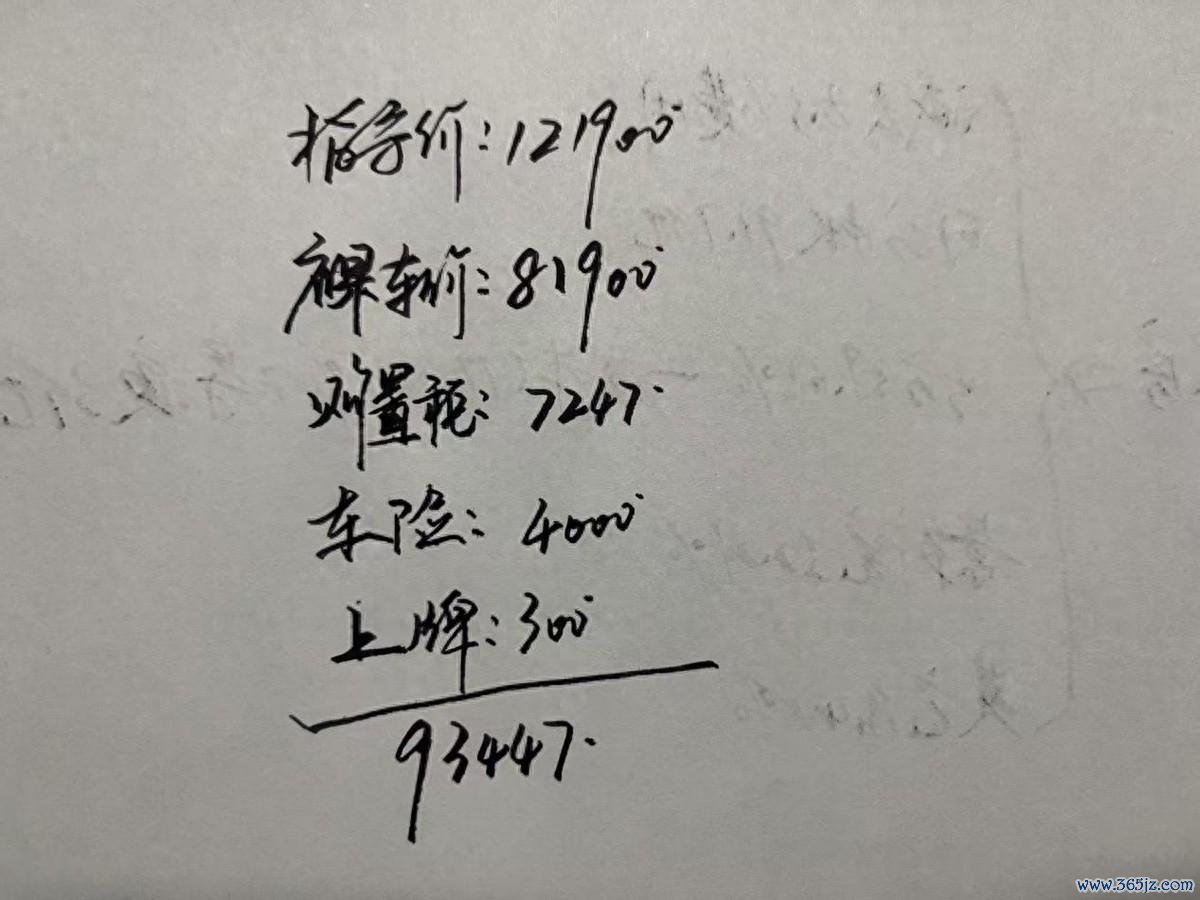 指导价：121900
裸车价：81900
购置税：7247
车险：4000
上牌：300
93447
www.365jz.com